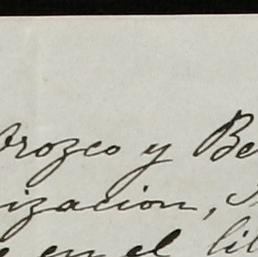 Orozco y Be
nización,
e en el lib